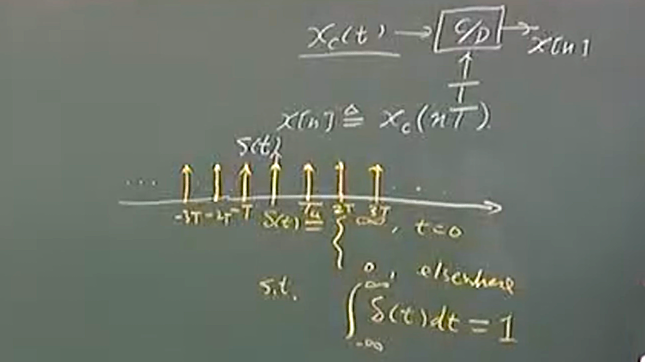 x_c(t) → C/D → x[n]
T
x[n] ≜ x_c(nT)
s(t)
... -3T -2T -T T 2T 3T ...
δ(t) ≜ { ∞, t=0
0, elsewhere
s.t. ∫_{-∞}^{∞} δ(t)dt = 1